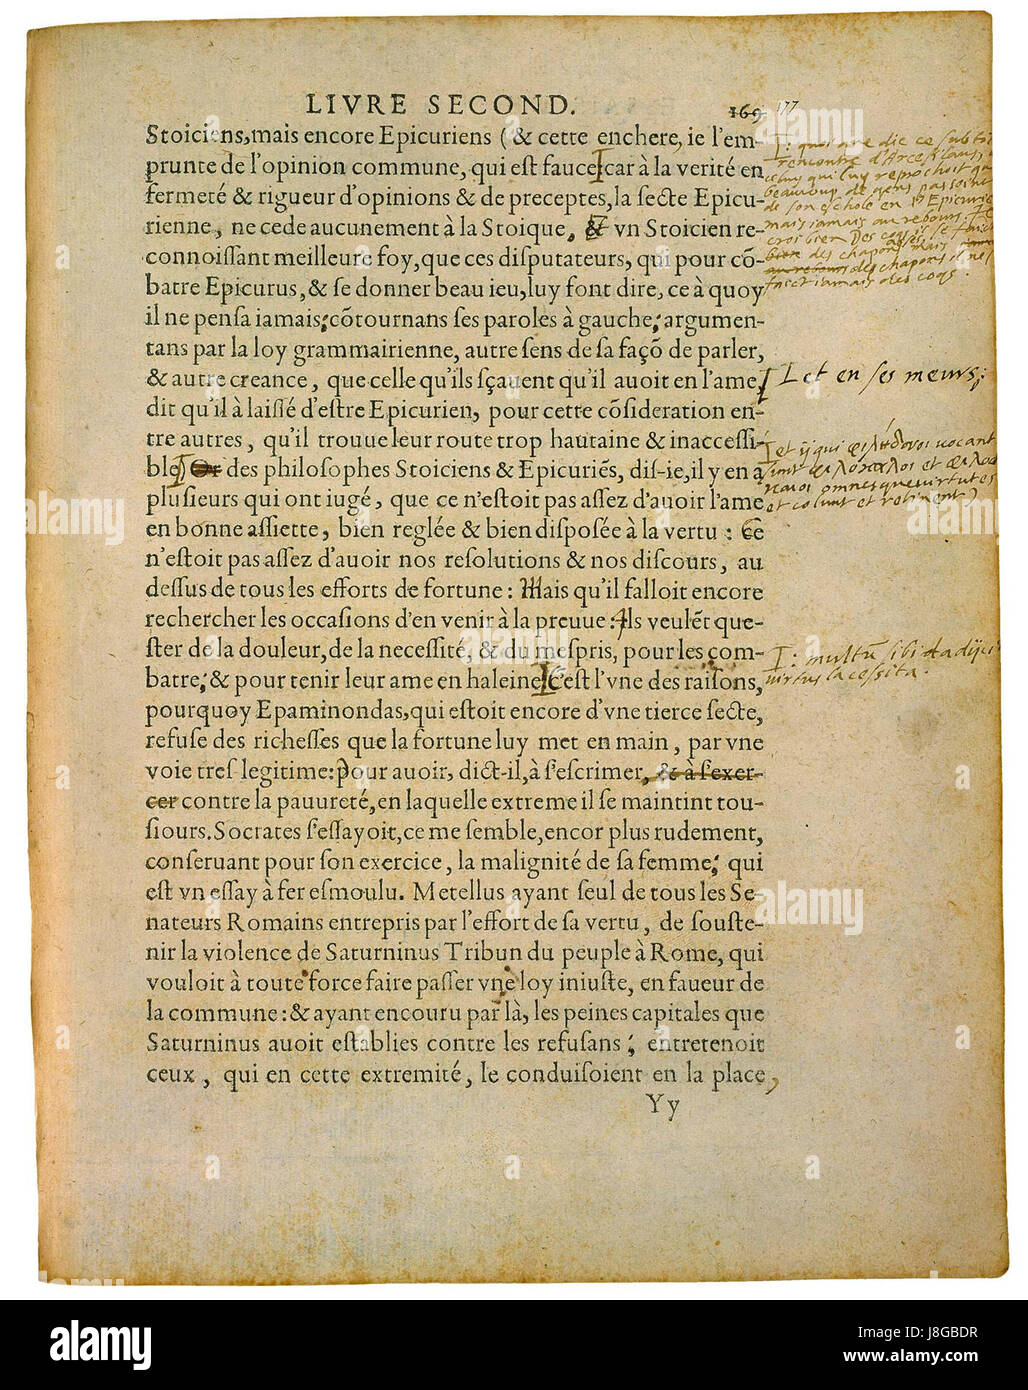 LIVRE SECOND.
169
177
Stoiciens, mais encore Epicuriens (& cette enchere, ie l'em-
prunte de l'opinion commune, qui est fauce car à la verité en
fermeté & rigueur d'opinions & de preceptes, la secte Epicu-
rienne, ne cede aucunement à la Stoique, & vn Stoicien re-
connoissant meilleure foy, que ces disputateurs, qui pour cõ-
batre Epicurus, & se donner beau ieu, luy font dire, ce à quoy
il ne pensa iamais; cõtournans ses paroles à gauche; argumen-
tans par la loy grammairienne, autre sens de sa façõ de parler,
& autre creance, que celle qu'ils sçauent qu'il auoit en l'ame,
dit qu'il à laissé d'estre Epicurien, pour cette cõsideration en-
tre autres, qu'il trouue leur route trop hautaine & inaccessi-
ble) Or des philosophes Stoiciens & Epicuriẽs, dis-ie, il y en a
plusieurs qui ont iugé, que ce n'estoit pas assez d'auoir l'ame
en bonne assiette, bien reglée & bien disposée à la vertu : Ce
n'estoit pas assez d'auoir nos resolutions & nos discours, au
dessus de tous les efforts de fortune : Mais qu'il falloit encore
rechercher les occasions d'en venir à la preuue : Ils veulẽt que-
ster de la douleur, de la necessité, & du mespris, pour les com-
batre; & pour tenir leur ame en haleine C'est l'vne des raisons,
pourquoy Epaminondas, qui estoit encore d'vne tierce secte,
refuse des richesses que la fortune luy met en main, par vne
voie tres legitime: pour auoir, dict-il, à s'escrimer, & à s'exer-
cer contre la pauureté, en laquelle extreme il se maintint tou-
siours. Socrates s'essayoit, ce me semble, encor plus rudement,
conseruant pour son exercice, la malignité de sa femme; qui
est vn essay à fer esmoulu. Metellus ayant seul de tous les Se-
nateurs Romains entrepris par l'effort de sa vertu, de souste-
nir la violence de Saturninus Tribun du peuple à Rome, qui
vouloit à toute force faire passer vne loy iniuste, en faueur de
la commune : & ayant encouru par là, les peines capitales que
Saturninus auoit establies contre les refusans; entretenoit
ceux, qui en cette extremité, le conduisoient en la place,
Yy
quoi que die ce subtil
rencontre d'Arcesilaus
celuy qui luy reprochoit que
beaucoup de gens passoient
de son eschole en l' Epicurie
mais iamais au rebours
croi bien Des coqs il se faict
des chapons assez mais
des chapons il ne s
faict iamais des coqs.
et en ses meurs;
et ii qui φιλήδονοι uocant
sunt φιλόκαλοι et φιλο
καιοι omnesque uirtutes
et colunt et retinent)
multũ sibi adijcit
uirtus lacessita.
alamy
Image ID: J8GBDR
www.alamy.com